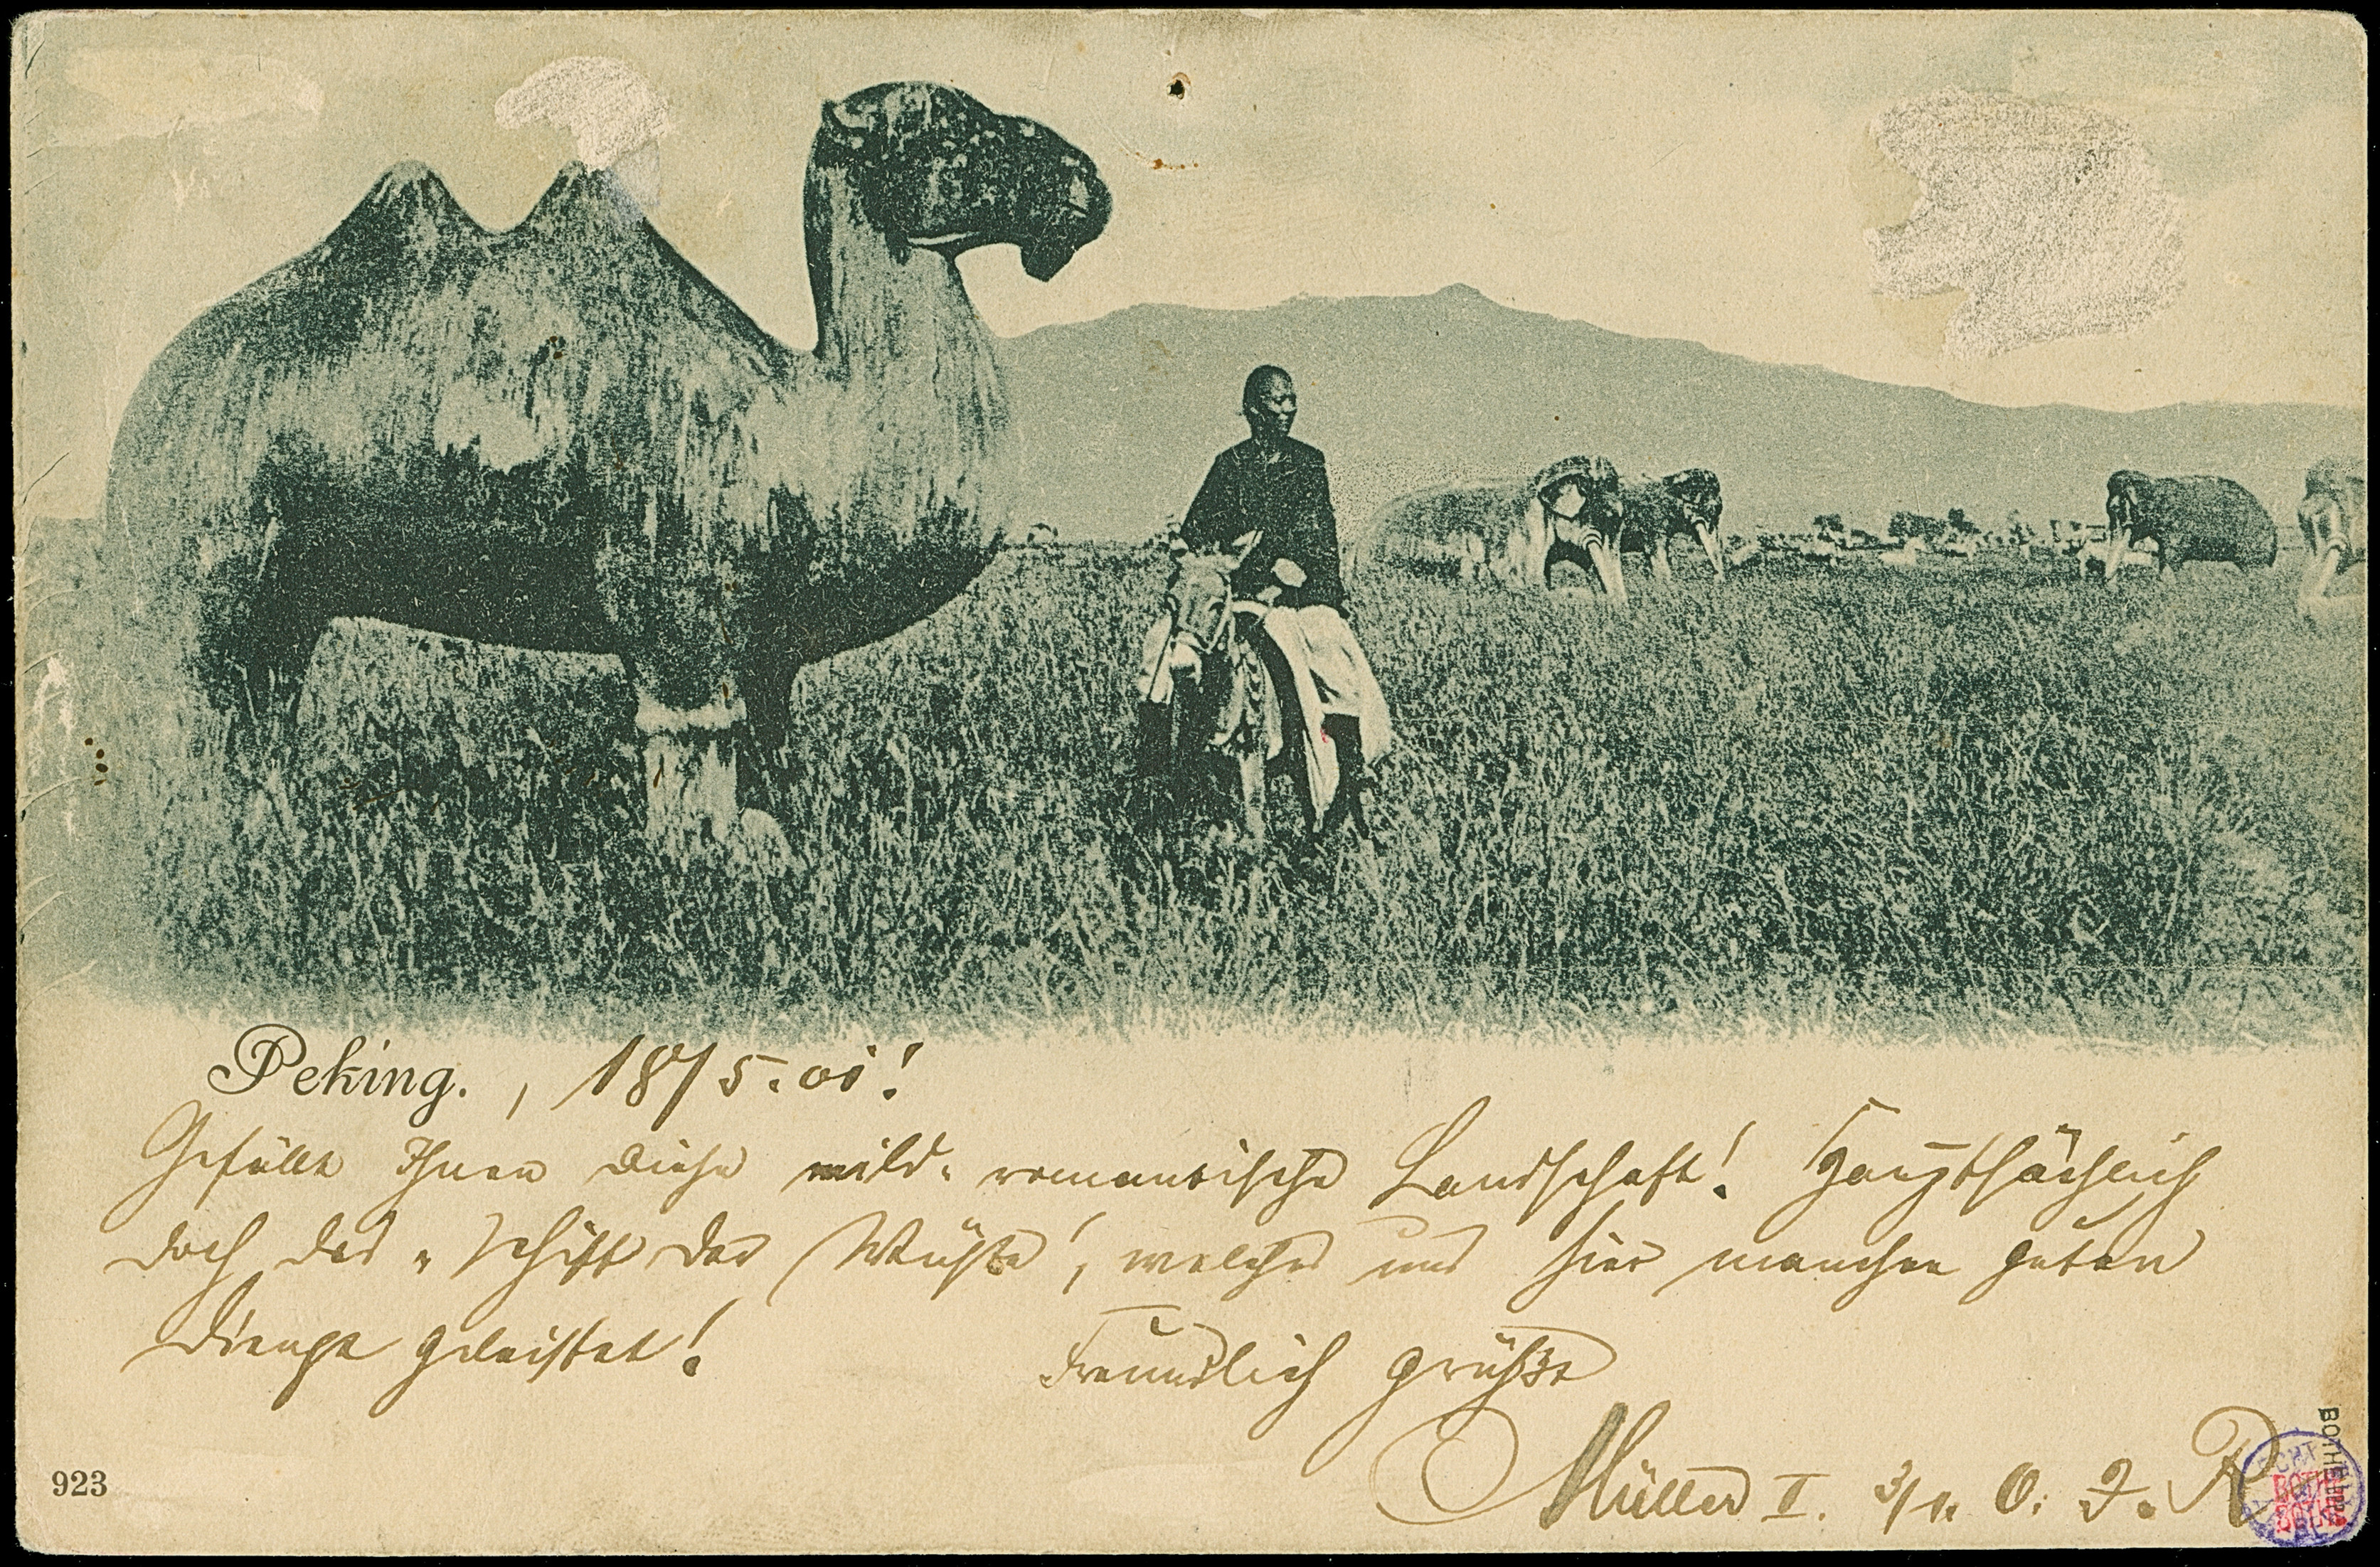 Peking. , 18/5. 01!
Gefällt Ihnen diese wild-romantische Landschaft! Hauptsächlich
doch das „Schiff der Wüste", welches uns hier manchen guten
Dienst geleistet!
Freundlich grüßt
Müller I. 3/1. O. J. R
923
BOTHE
BOTHE
BOTHE